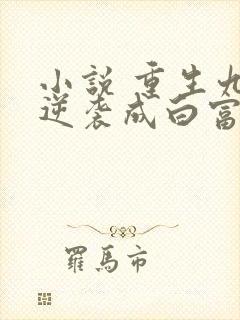 小説 重生九
逆袭成白富
羅馬市